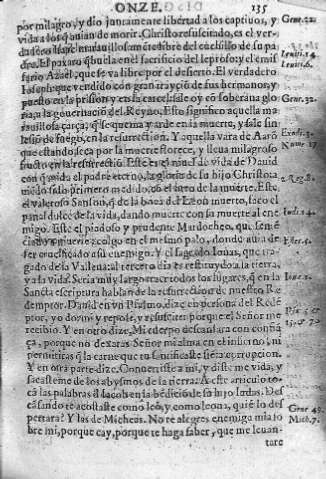 ONZE. 135
por milagro, y dio juntamente libertad a los captiuos, y
vida a los que auian de morir. Christo resuscitado, es el ver-
dadero Isaac marauillosamente libre del cuchillo de su pa-
dre. El paxaro que buela en el sacrificio del leproso; y el emis
sario Azael, que se va libre por el desierto. El verdadero
Ioseph que vendido con gran trayciō de sus hermanos, y
puesto en la prisiōn y en la carcel sale oy cō soberana glo
ria, a la gouernacion del Reyno. Esto significò aquella ma
rauillosa çarça, que se quema y arde en la muerte, y sale sin
lesiō de fuego, en la resurrection. Y aquella vara de Aarō
que estando seca por la muerte florece, y lleua milagroso
fructo en la resurrectiō. Este es el de vida de David
con que mida el padre eterno, la gloria de su hijo Christo
primero medido, cō el de la muerte. Este,
el valeroso Sansoń, que de la boca del Leon muerto, saco el
panal dulce de la vida, dando muerte con su muerte al ene
migo. Este el piadoso y prudente Mardocheo, que
y muerte colgo en el mesmo palo, donde auia de
ser crucificado asi enemigo. Y el sagrado Ionas, que tra
gado de la Vallena al tercero dia es restituydo a la tierra,
y a la vida. Seria muy largo traer todos los lugares, que en la
Sancta escriptura hablan de la resurrection de nuestro Re
demptor. Dauid en vn Psalmo, dize en persona del Redē
ptor, yo dormi y reposè, y resuscitè porque el Señor me
recibio. Y en otro dize, Mi cuerpo descansara con confiā
ça, porque no dexaras Señor mi alma en el infierno, ni
permitiras que la carne que tu sanctificaste sieta corrupcion.
Y en otra parte dize. Conuertiste a mi, y diste me vida, y
sacasteme de los abysmos de la tierra. A este articulo to
cā las palabras de Iacob en la bēdiciō de su hijo Iudas. Des
cāsando te acostaste como leō, y como leona, quiē lo des
pertara? Y las de Micheas. No te alegres enemiga mia so
bre mi, porque cay, porque te haga saber, que me leuan
tare
Gene. 22.
Leuit. 14.
Leuit. 16.
Exod. 3.
Num. 17
2. Reg. 8.
Iud. 14.
Gene. 49.
Mich. 7.